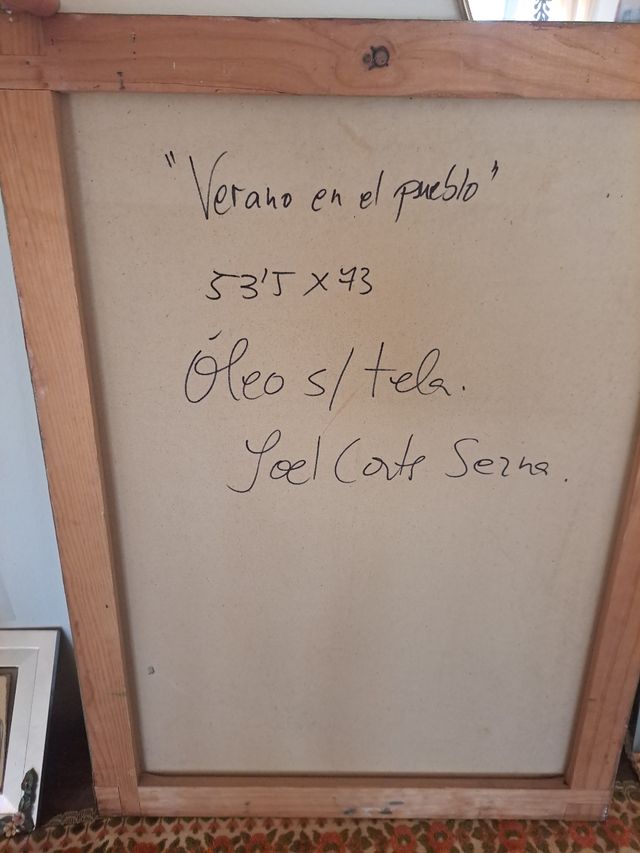 "Verano en el pueblo"
53'5 x 73
Óleo s/ tela.
Joel Corte Serna.